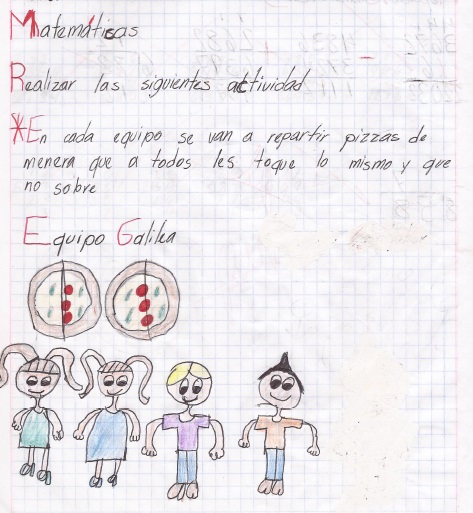 Matemáticas
Realizar las siguientes actividad
*En cada equipo se van a repartir pizzas de
menera que a todos les toque lo mismo y que
no sobre
Equipo Galilea